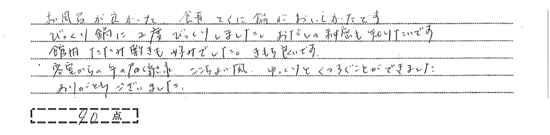 お風呂が良かった 食事 とくに 鍋が おいしかたです
びっくり鍋に 2度 びっくりしました。おだしの料感も 知りたいです
館内 たたみ敷きも 好みでした。きもち良いです。
客室からの 千の 風 ゆっくりと くつろぐことができました
ありがとう ございました。
90 点